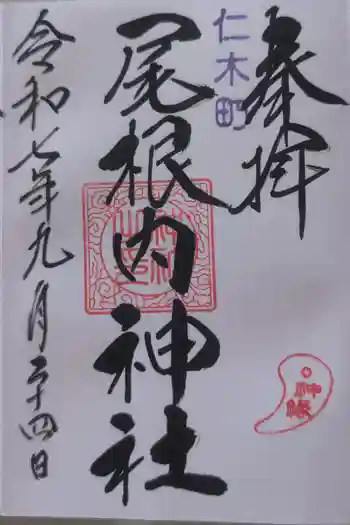 奉拝
仁木町
尾根内神社
神縁
令和七年九月二十四日